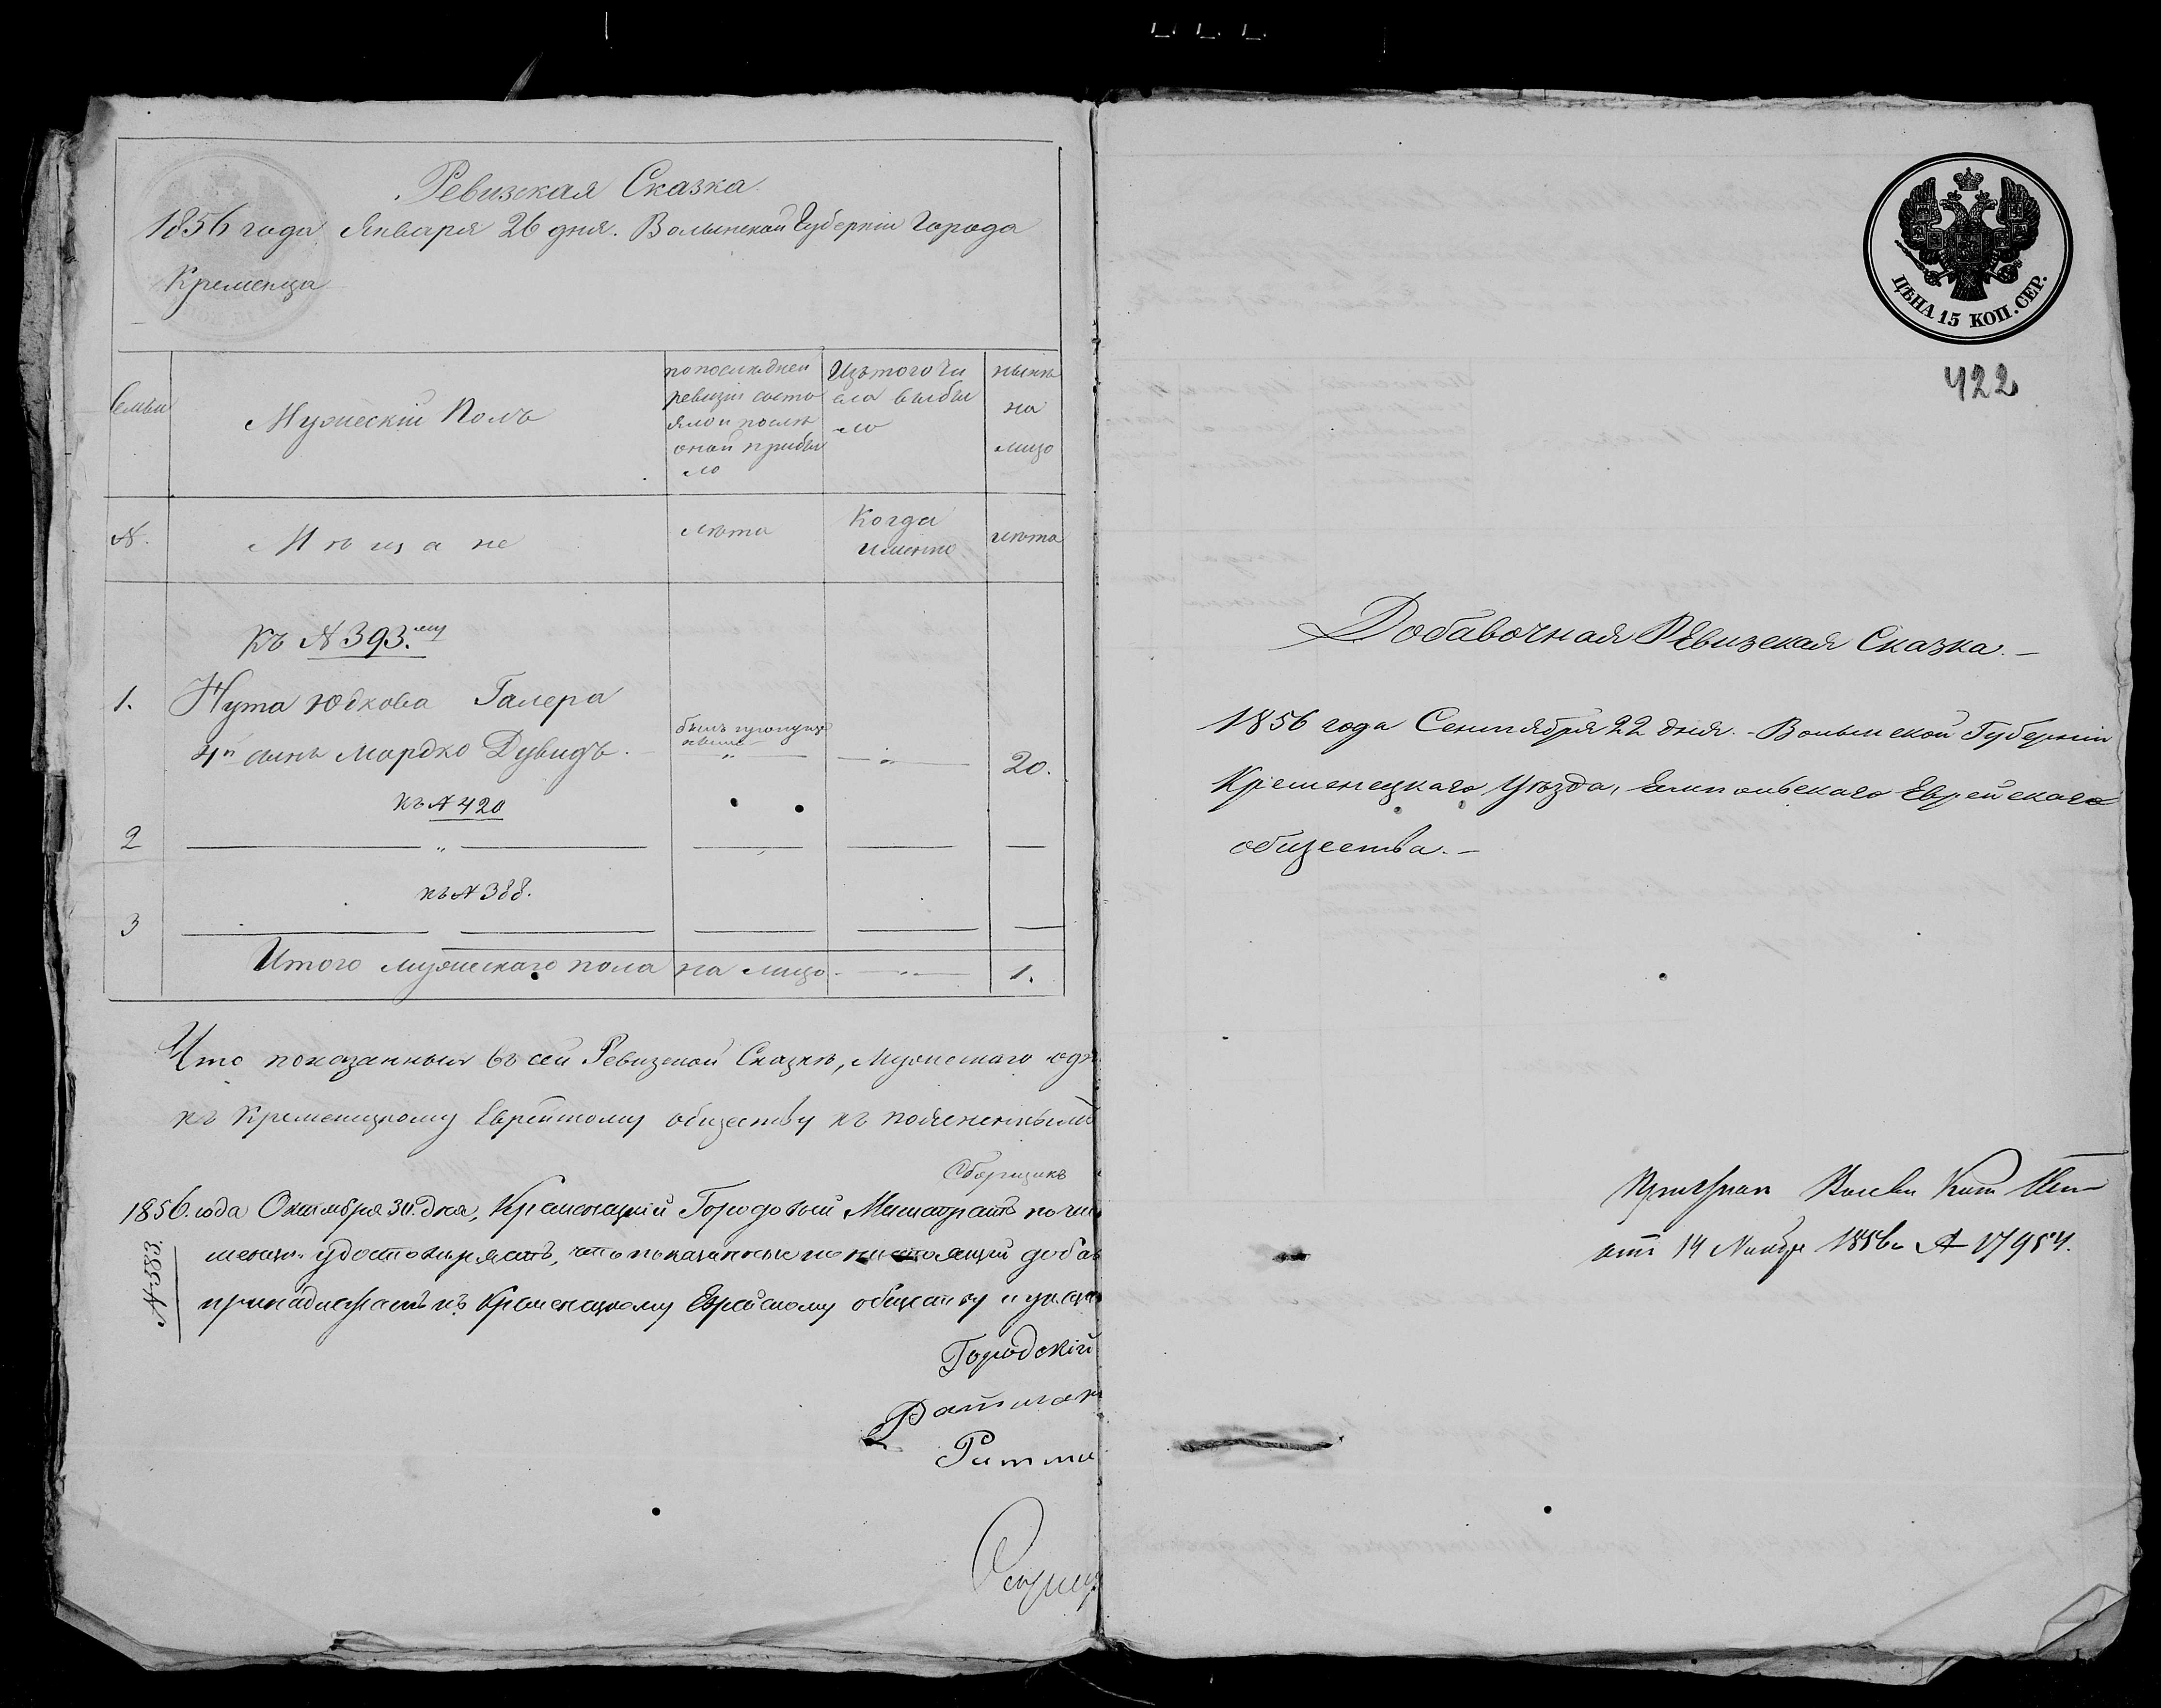 Ревизская Сказка
1856 года Января 26 дня. Волынской Губерніи Города
Кременца
Семьи
Мужескій Полъ
по последней
ревизіи состо
яло и послѣ
оной прибы
ло
Изъ того чи
сла выбы
ло
нынѣ
на
лицо
№.
Мѣщане
лѣта
Когда
именно
лѣта
Къ № 393.му
1. Нута Юдкова Галера
4й сынъ Мордко Дувидъ. былъ пропущ „ — — „ — 20.
къ № 420
2 — „ — — — —
къ № 388.
3 — — — — —
Итого мужескаго пола на лицо — „ — 1.
Что показанный въ сей Ревизской Сказкѣ, Мужескаго
къ Кременецкому Еврейскому обществу къ
Сборщикъ
1856. года Октября 30. дня, Кременецкій Городовый Магистратъ
удостовѣряетъ, что показанные по настоящей добав
принадлежатъ къ Кременецкому Еврейскому обществу и
Городскій
Ратман
Ратма
№ 583
ЦѢНА 15 КОП. СЕР.
422
Добавочная Ревизская Сказка. —
1856 года Сентября 22 дня. - Волынской Губерніи
Кременецкаго Уѣзда, Ямпольскаго Еврейскаго
общества. —
отъ 14 Ноября 1856 № 17954.